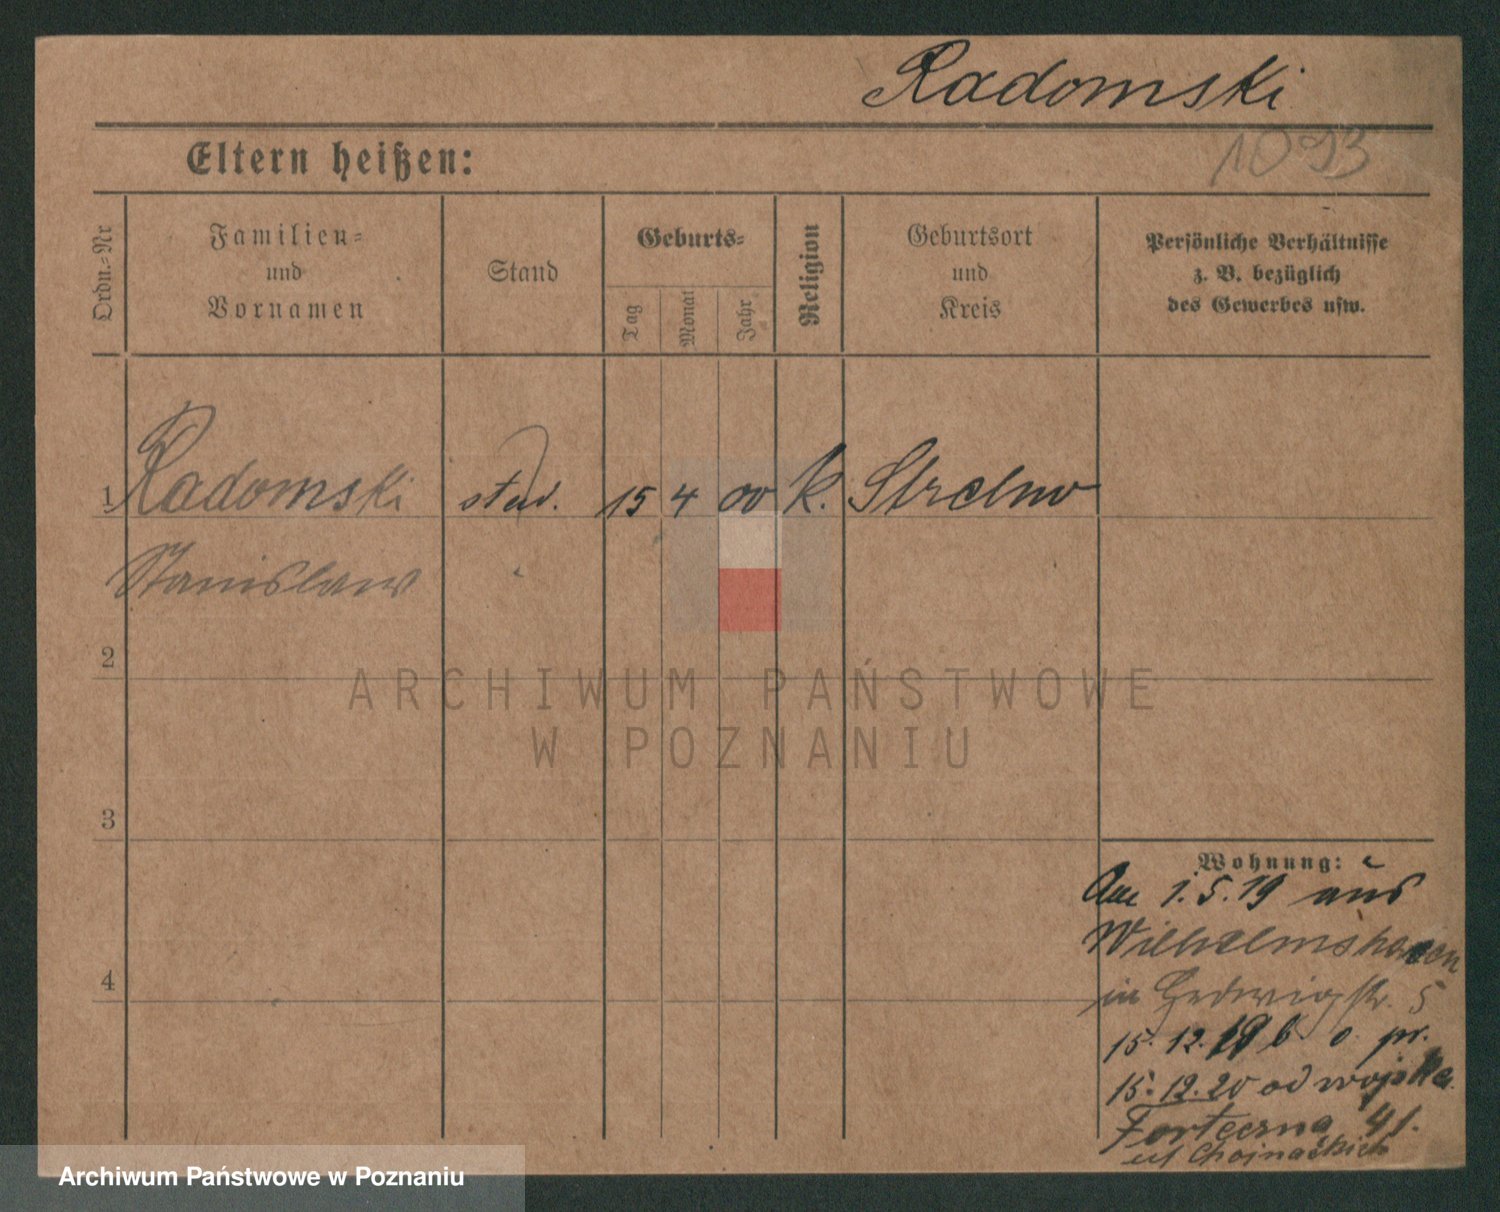 Radomski
1093
Eltern heißen:
Ordn.=Nr
Familien=
und
Vornamen
Stand
Geburts=
Tag
Monat
Jahr
Religion
Geburtsort
und
Kreis
Persönliche Verhältnisse
z. B. bezüglich
des Gewerbes usw.
1 Radomski stud. 15 4 00 k. Strelno
Stanislaw
2
3
4
Wohnung:
Am 1.5.19 aus
Wilhelmshaven
in Hedwigstr. 5
15.12.19 b. o. pr.
15.12.20 od wojska
Forteczna 4
Chojnackich
ARCHIWUM PAŃSTWOWE
W POZNANIU
Archiwum Państwowe w Poznaniu